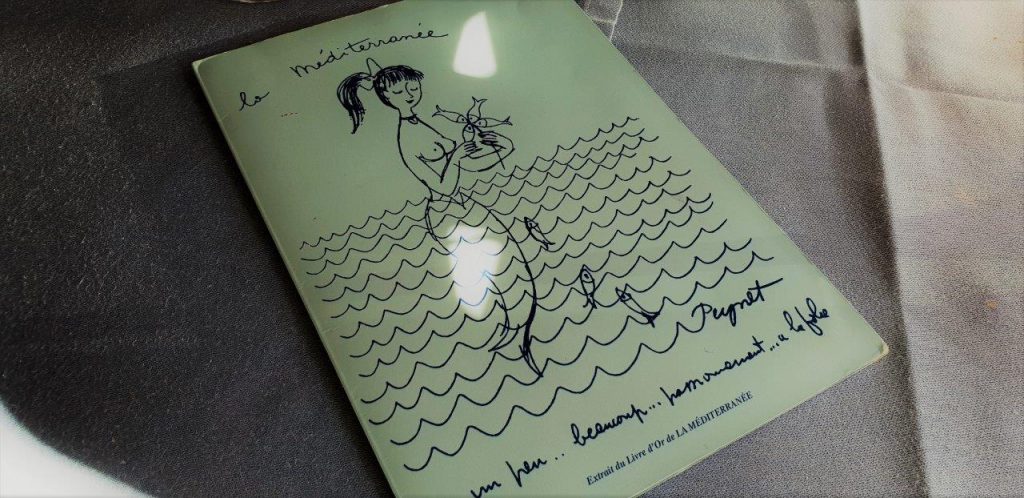 la
Méditerranée
Peynet
un peu.. beaucoup... passionnement... a la folie
Extrait du Livre d'Or de LA MÉDITERRANÉE